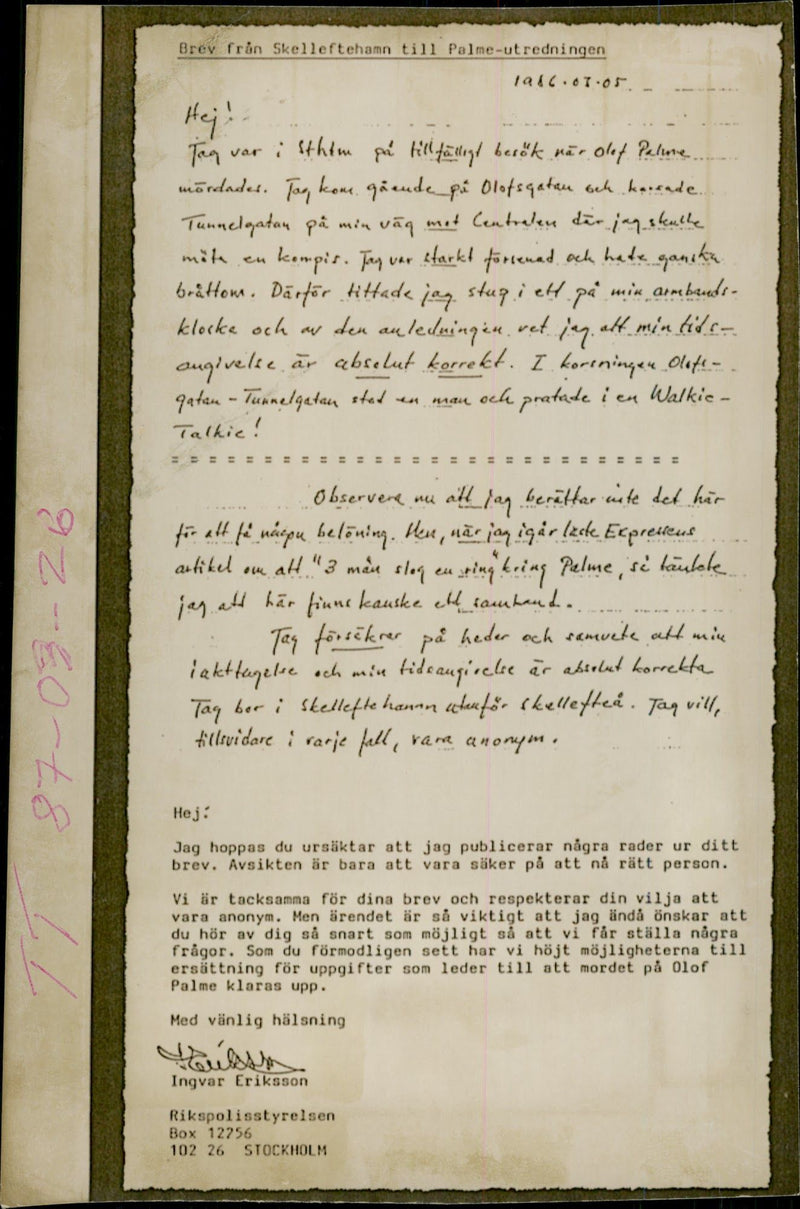 Brev från Skelleftehamn till Palme-utredningen
Hej!
Jag var i Sthlm på tillfälligt besök när Olof Palme
mördades. Jag kom gående på Olofsgatan och korsade
Tunnelgatan på min väg mot Centralen där jag skulle
möta en kompis. Jag var starkt försenad och hade ganska
bråttom. Därför tittade jag stup i ett på min armbands-
klocka och av den anledningen vet jag att min tids-
angivelse är absolut korrekt. I korsningen Olofs-
gatan - Tunnelgatan stod en man och pratade i en Walkie-
Talkie!
= = = = = = = = = = = = = = = = = = = = = = = = = = = =
Observera nu att jag berättar inte det här
för att få någon belöning. Men, när jag igår läste Expressens
artikel om att "3 män slog en ring" kring Palme, så tänkte
jag att här finns kanske ett samband.
Jag försäkrar på heder och samvete att min
iakttagelse och min tidsangivelse är absolut korrekta
Jag bor i Skelleftehamn utanför Skellefteå. Jag vill,
tillsvidare i varje fall, vara anonym.
Hej!
Jag hoppas du ursäktar att jag publicerar några rader ur ditt
brev. Avsikten är bara att vara säker på att nå rätt person.
Vi är tacksamma för dina brev och respekterar din vilja att
vara anonym. Men ärendet är så viktigt att jag ändå önskar att
du hör av dig så snart som möjligt så att vi får ställa några
frågor. Som du förmodligen sett har vi höjt möjligheterna till
ersättning för uppgifter som leder till att mordet på Olof
Palme klaras upp.
Med vänlig hälsning
Ingvar Eriksson
Rikspolisstyrelsen
Box 12256
102 26 STOCKHOLM
TT 87-03-26